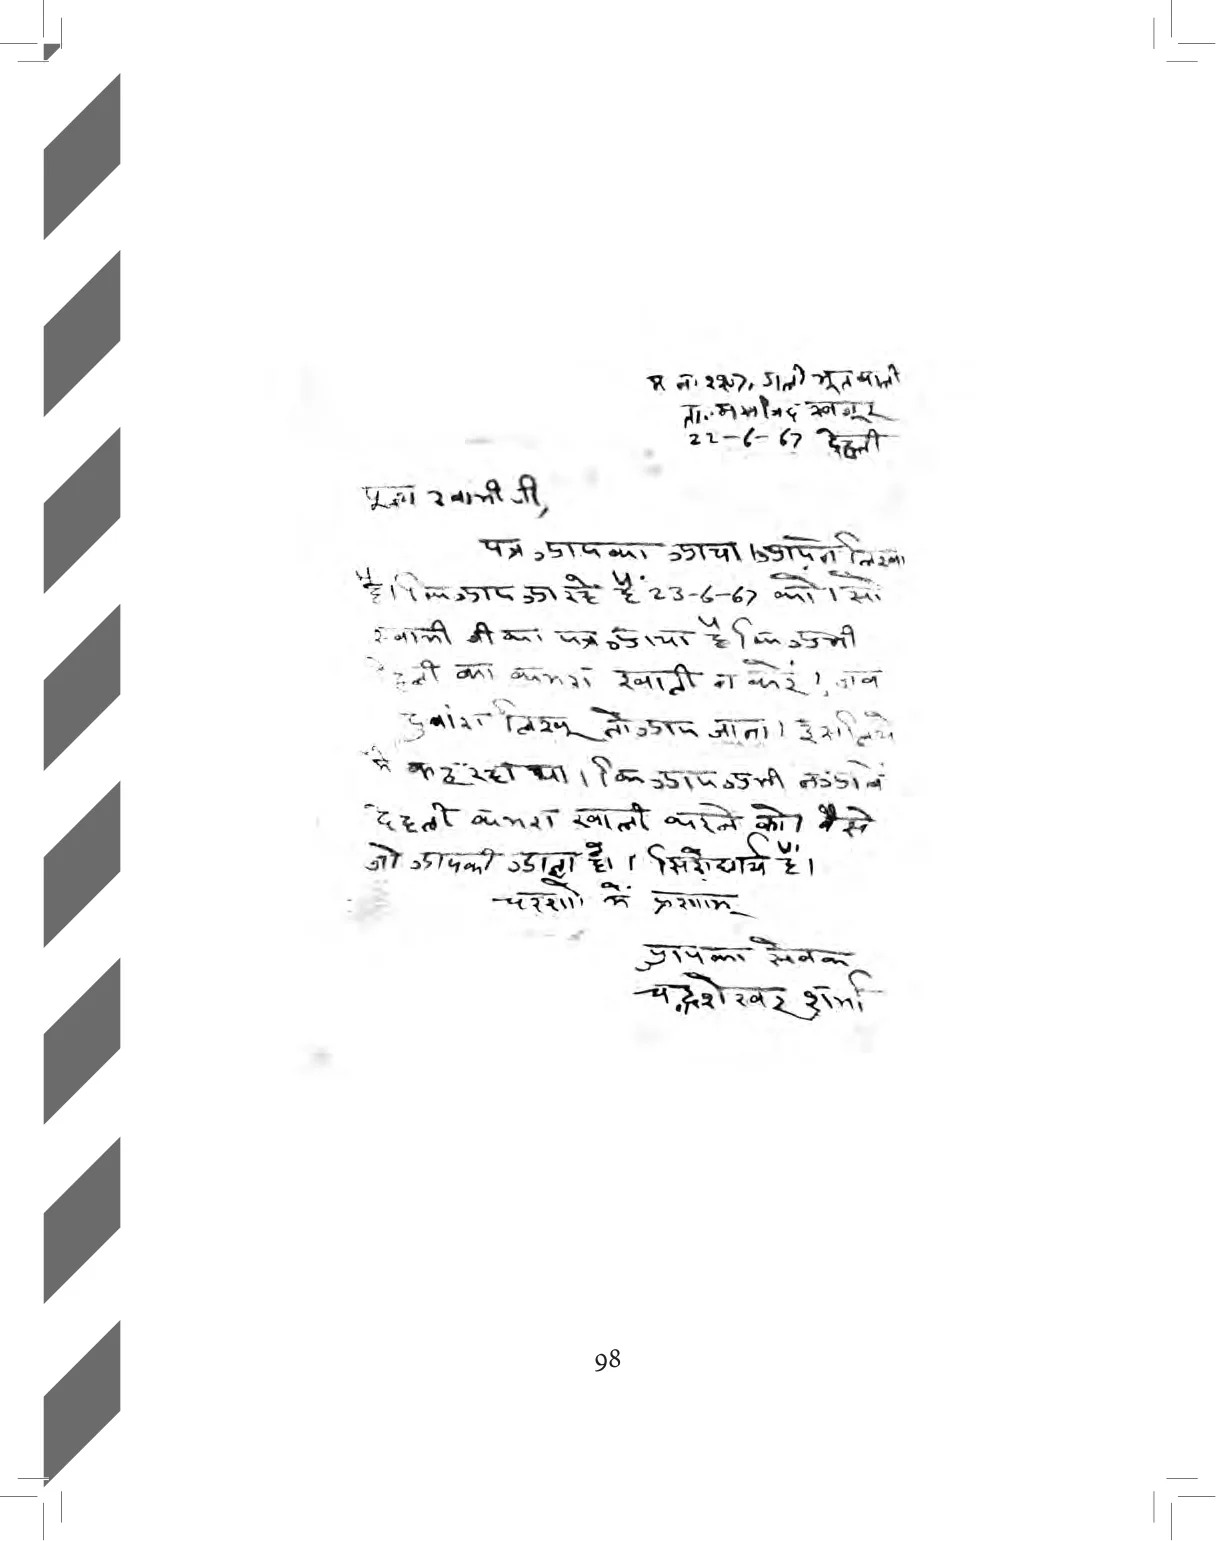 म नं. गली भूतवाली
ता. मसजिद खजूर
22-6-67 देहली
पूज्य स्वामी जी,
पत्र आपका आया। आपने लिखा
है। कि आप आ रहे हैं 23-6-67 को। सो
स्वामी जी का पत्र आया है कि अभी
देहली का कमरा खाली न करें, जब
दुबारा लिखू तो आप जाना। इसलिये
मैं कह रहा था। कि आप अभी न आवें
देहली कमरा खाली करने को। वैसे
जो आपकी आज्ञा है। । सिरोधार्य है।
चरणों में प्रणाम
आपका सेवक
चन्द्रशेखर शर्मा
98